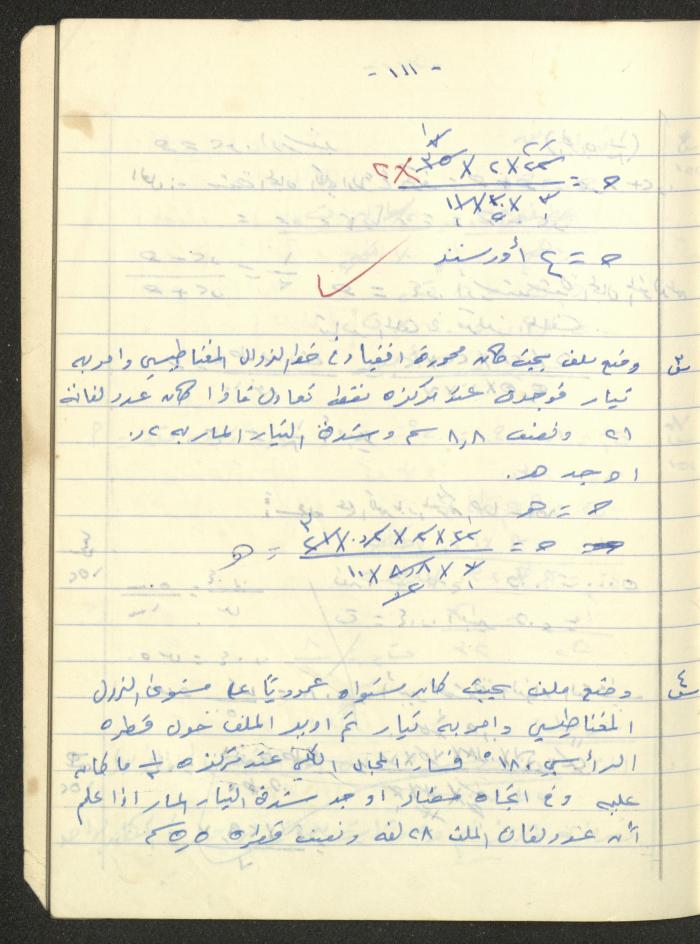 - ١١١ -
ح =
ح = ٤ أورستد
س وضع ملف بحيث كان محوره افقيا في خط الزوال المغناطيسي وامر به
تيار فوجد في عند مركزه نقط تعادل فاذا كان عدد لفاته
٢١ ونصف ٨,٨ سم وشدة التيار المار به ٢ر.
اوجد هـ.
ح = هـ
ح = = هـ
س٤ وضع ملف بحيث كان مستواه عموديًا على مستوى الزوال
المغناطيسي وامر به تيار ثم ادير الملف حول قطره
الرأسي ١٨٠° فسار المجال الكلي عند مركزه ما كان
عليه وفي اتجاه مضاد اوجد شدة التيار المار اذا علم
أن عدد لفات الملف ٢٨ لفه ونصف قطره ٥,٥ سم